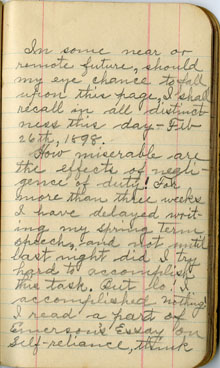 In some near or
remote future, should
my eye chance to fall
upon this page, I shall
recall in all distinct-
ness this day - Feb
26th, 1898.
How miserable are
the effects of negli-
gence of duty! For
more than three weeks
I have delayed writ-
ing my spring term
speech, and not until
last night did I try
hard to accomplish
this task. But lo! I
accomplished nothing!
I read a part of
Emerson's Essay on
Self-reliance, think